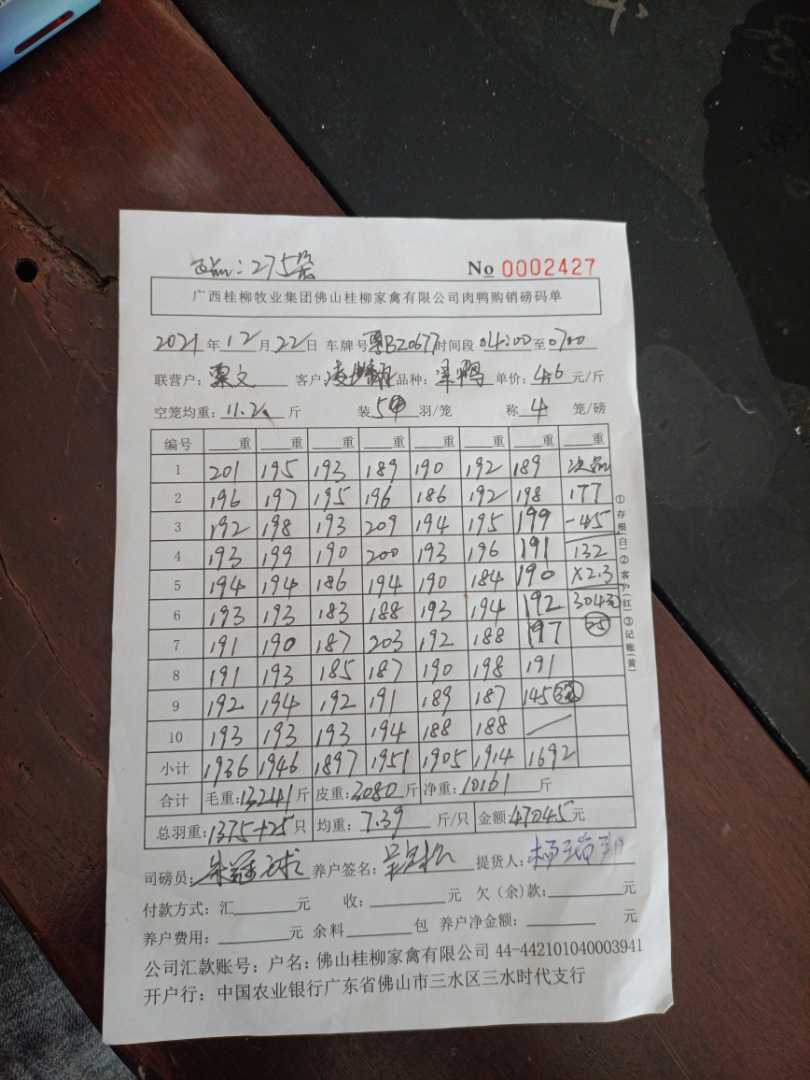 275条
No 0002427
广西桂柳牧业集团佛山桂柳家禽有限公司肉鸭购销磅码单
2021年12月22日 车牌号粤BZ0677时间段04:00至0700
联营户: 文 客户: 品种: 鸭 单价: 4.6元/斤
空笼均重: 11.2斤 装5羽/笼 称4笼/磅
编号 重 重 重 重 重 重 重 重
1 201 195 193 189 190 192 189 次品
2 196 197 195 196 186 192 198 177
3 192 198 193 209 194 195 199 -45
4 193 199 190 200 193 196 191 132
5 194 194 186 194 190 184 190 X2.3
6 193 193 183 188 193 194 192 304元
7 191 190 187 203 192 188 197 25
8 191 193 185 187 190 198 191
9 192 194 192 191 189 187 145
10 193 193 193 194 188 188
小计 1936 1946 1897 1951 1905 1914 1692
合计 毛重:13241斤 皮重:3080斤 净重:10161斤
总羽重:1375+25只 均重:7.39斤/只 金额:47045元
司磅员: 养户签名: 提货人:
付款方式:汇 元 收: 元 欠(余)款: 元
养户费用: 元 余料 包 养户净金额: 元
公司汇款账号:户名:佛山桂柳家禽有限公司 44-442101040003941
开户行:中国农业银行广东省佛山市三水区三水时代支行
①存根(白)②客户(红)③记账(黄)